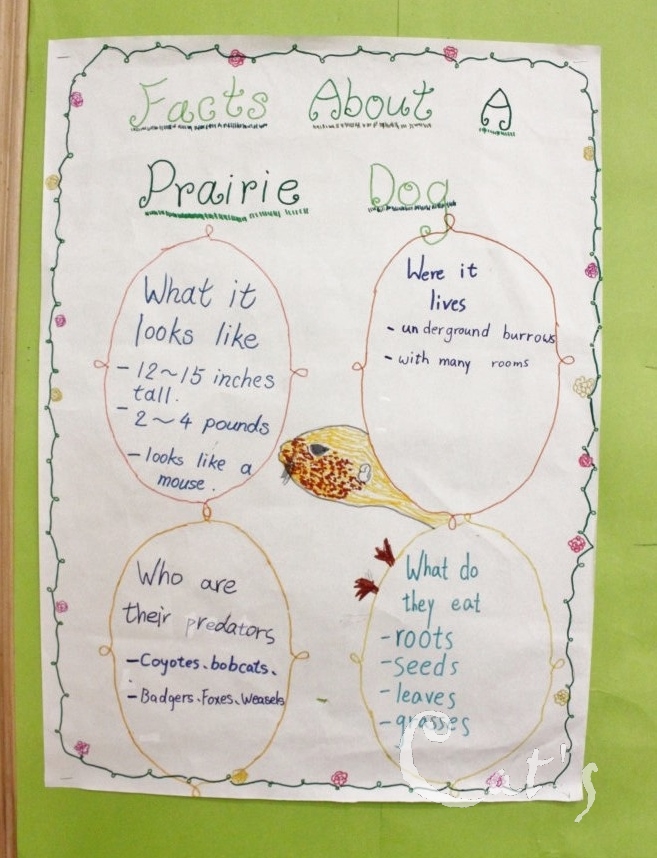 Facts About A
Prairie Dog
What it
looks like
- 12~15 inches
tall.
- 2~4 pounds
- looks like a
mouse.
Were it
lives
- underground burrows
- with many rooms
Who are
their predators
- Coyotes、bobcats、
- Badgers、Foxes、Weasels
What do
they eat
- roots
- seeds
- leaves
- grasses
Cat's